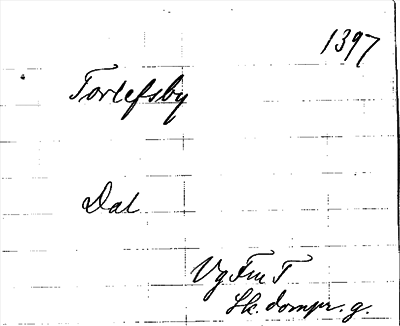 1397
Torlefsby
Dal
Vg Fm T
Sk. dompr. g.